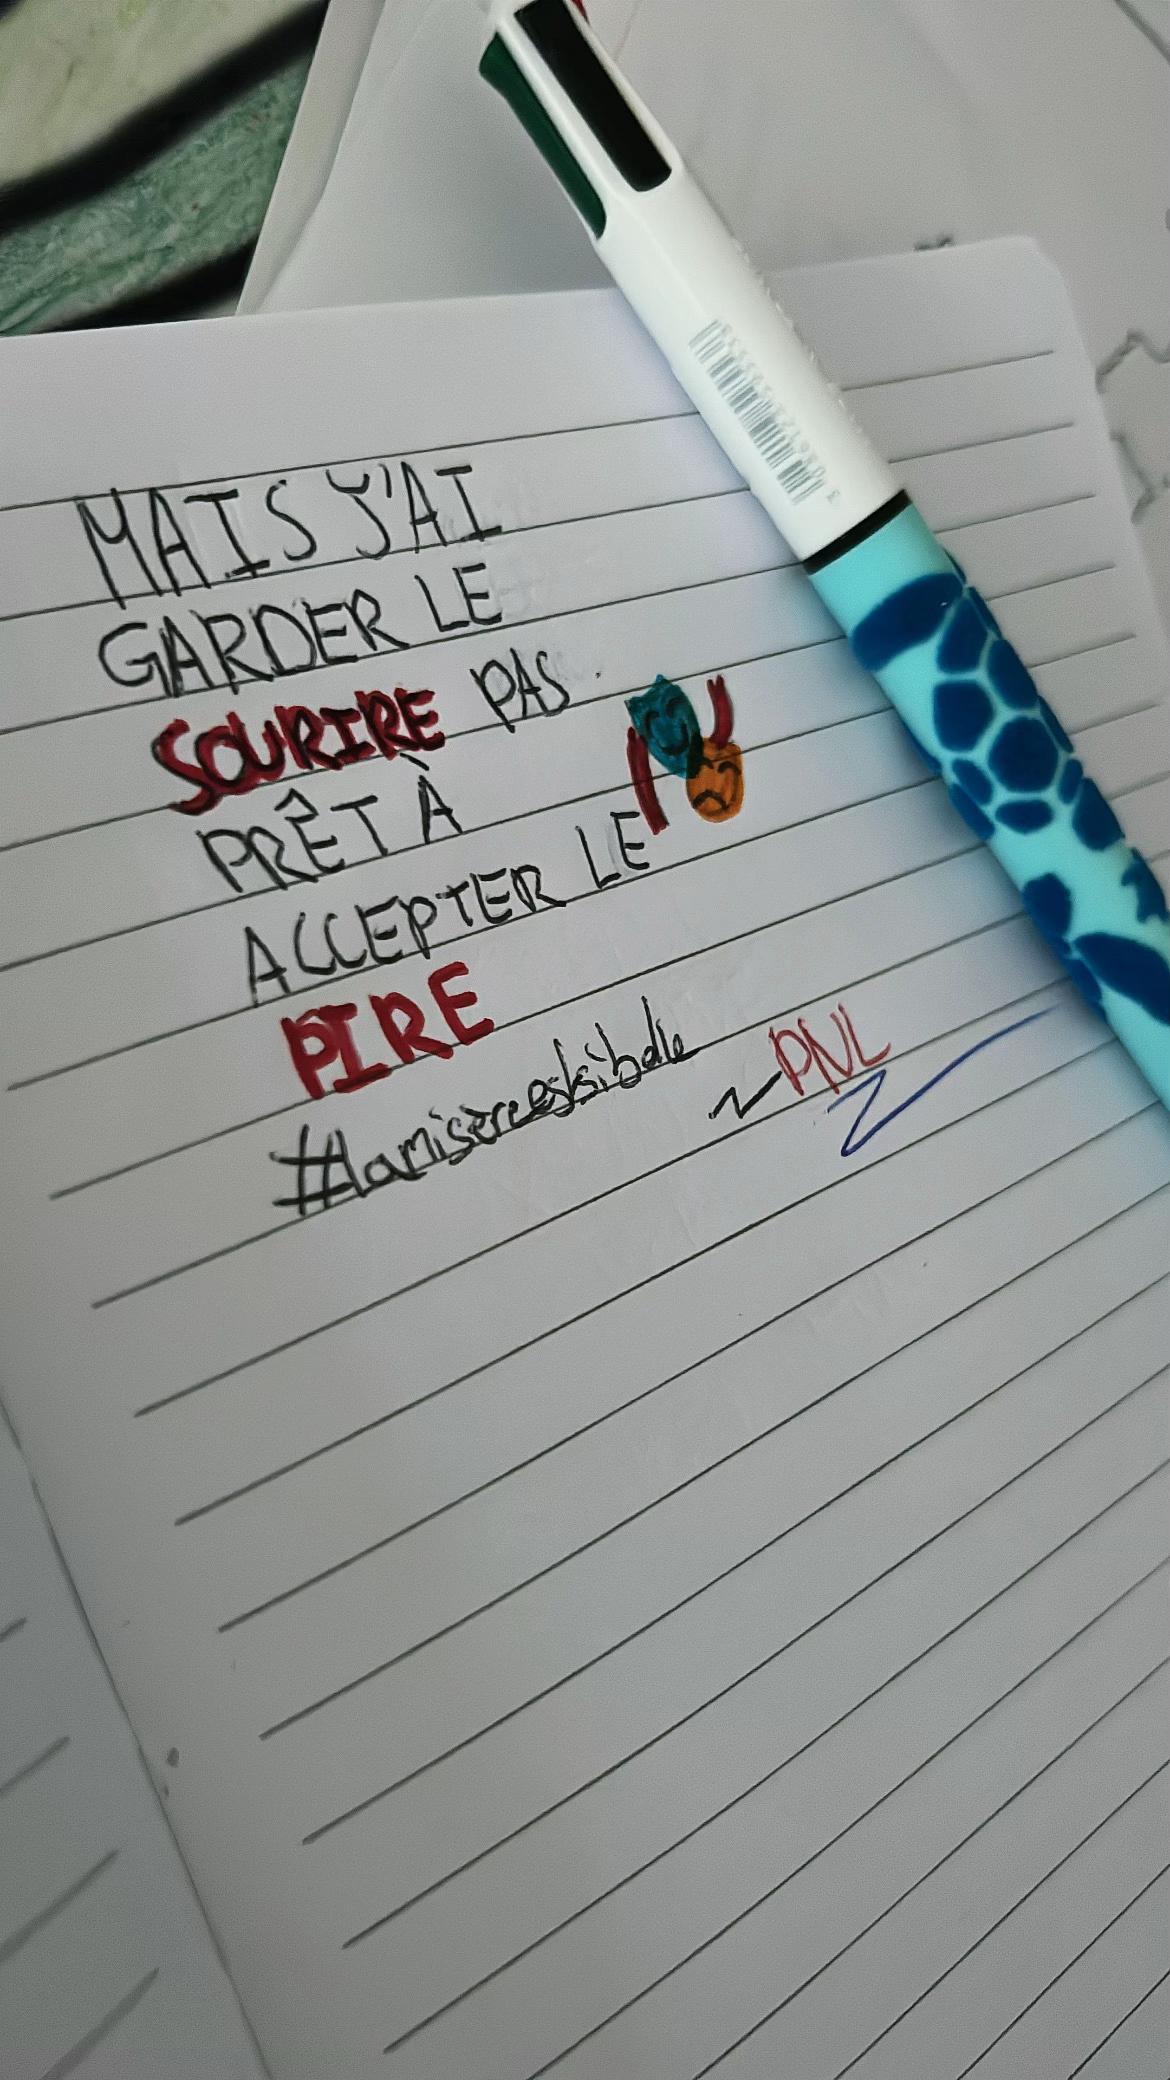 MAIS J'AI
GARDER LE
SOURIRE PAS
PRÊT À
ACCEPTER LE
PIRE
#lamisèreestsibelle
PNL